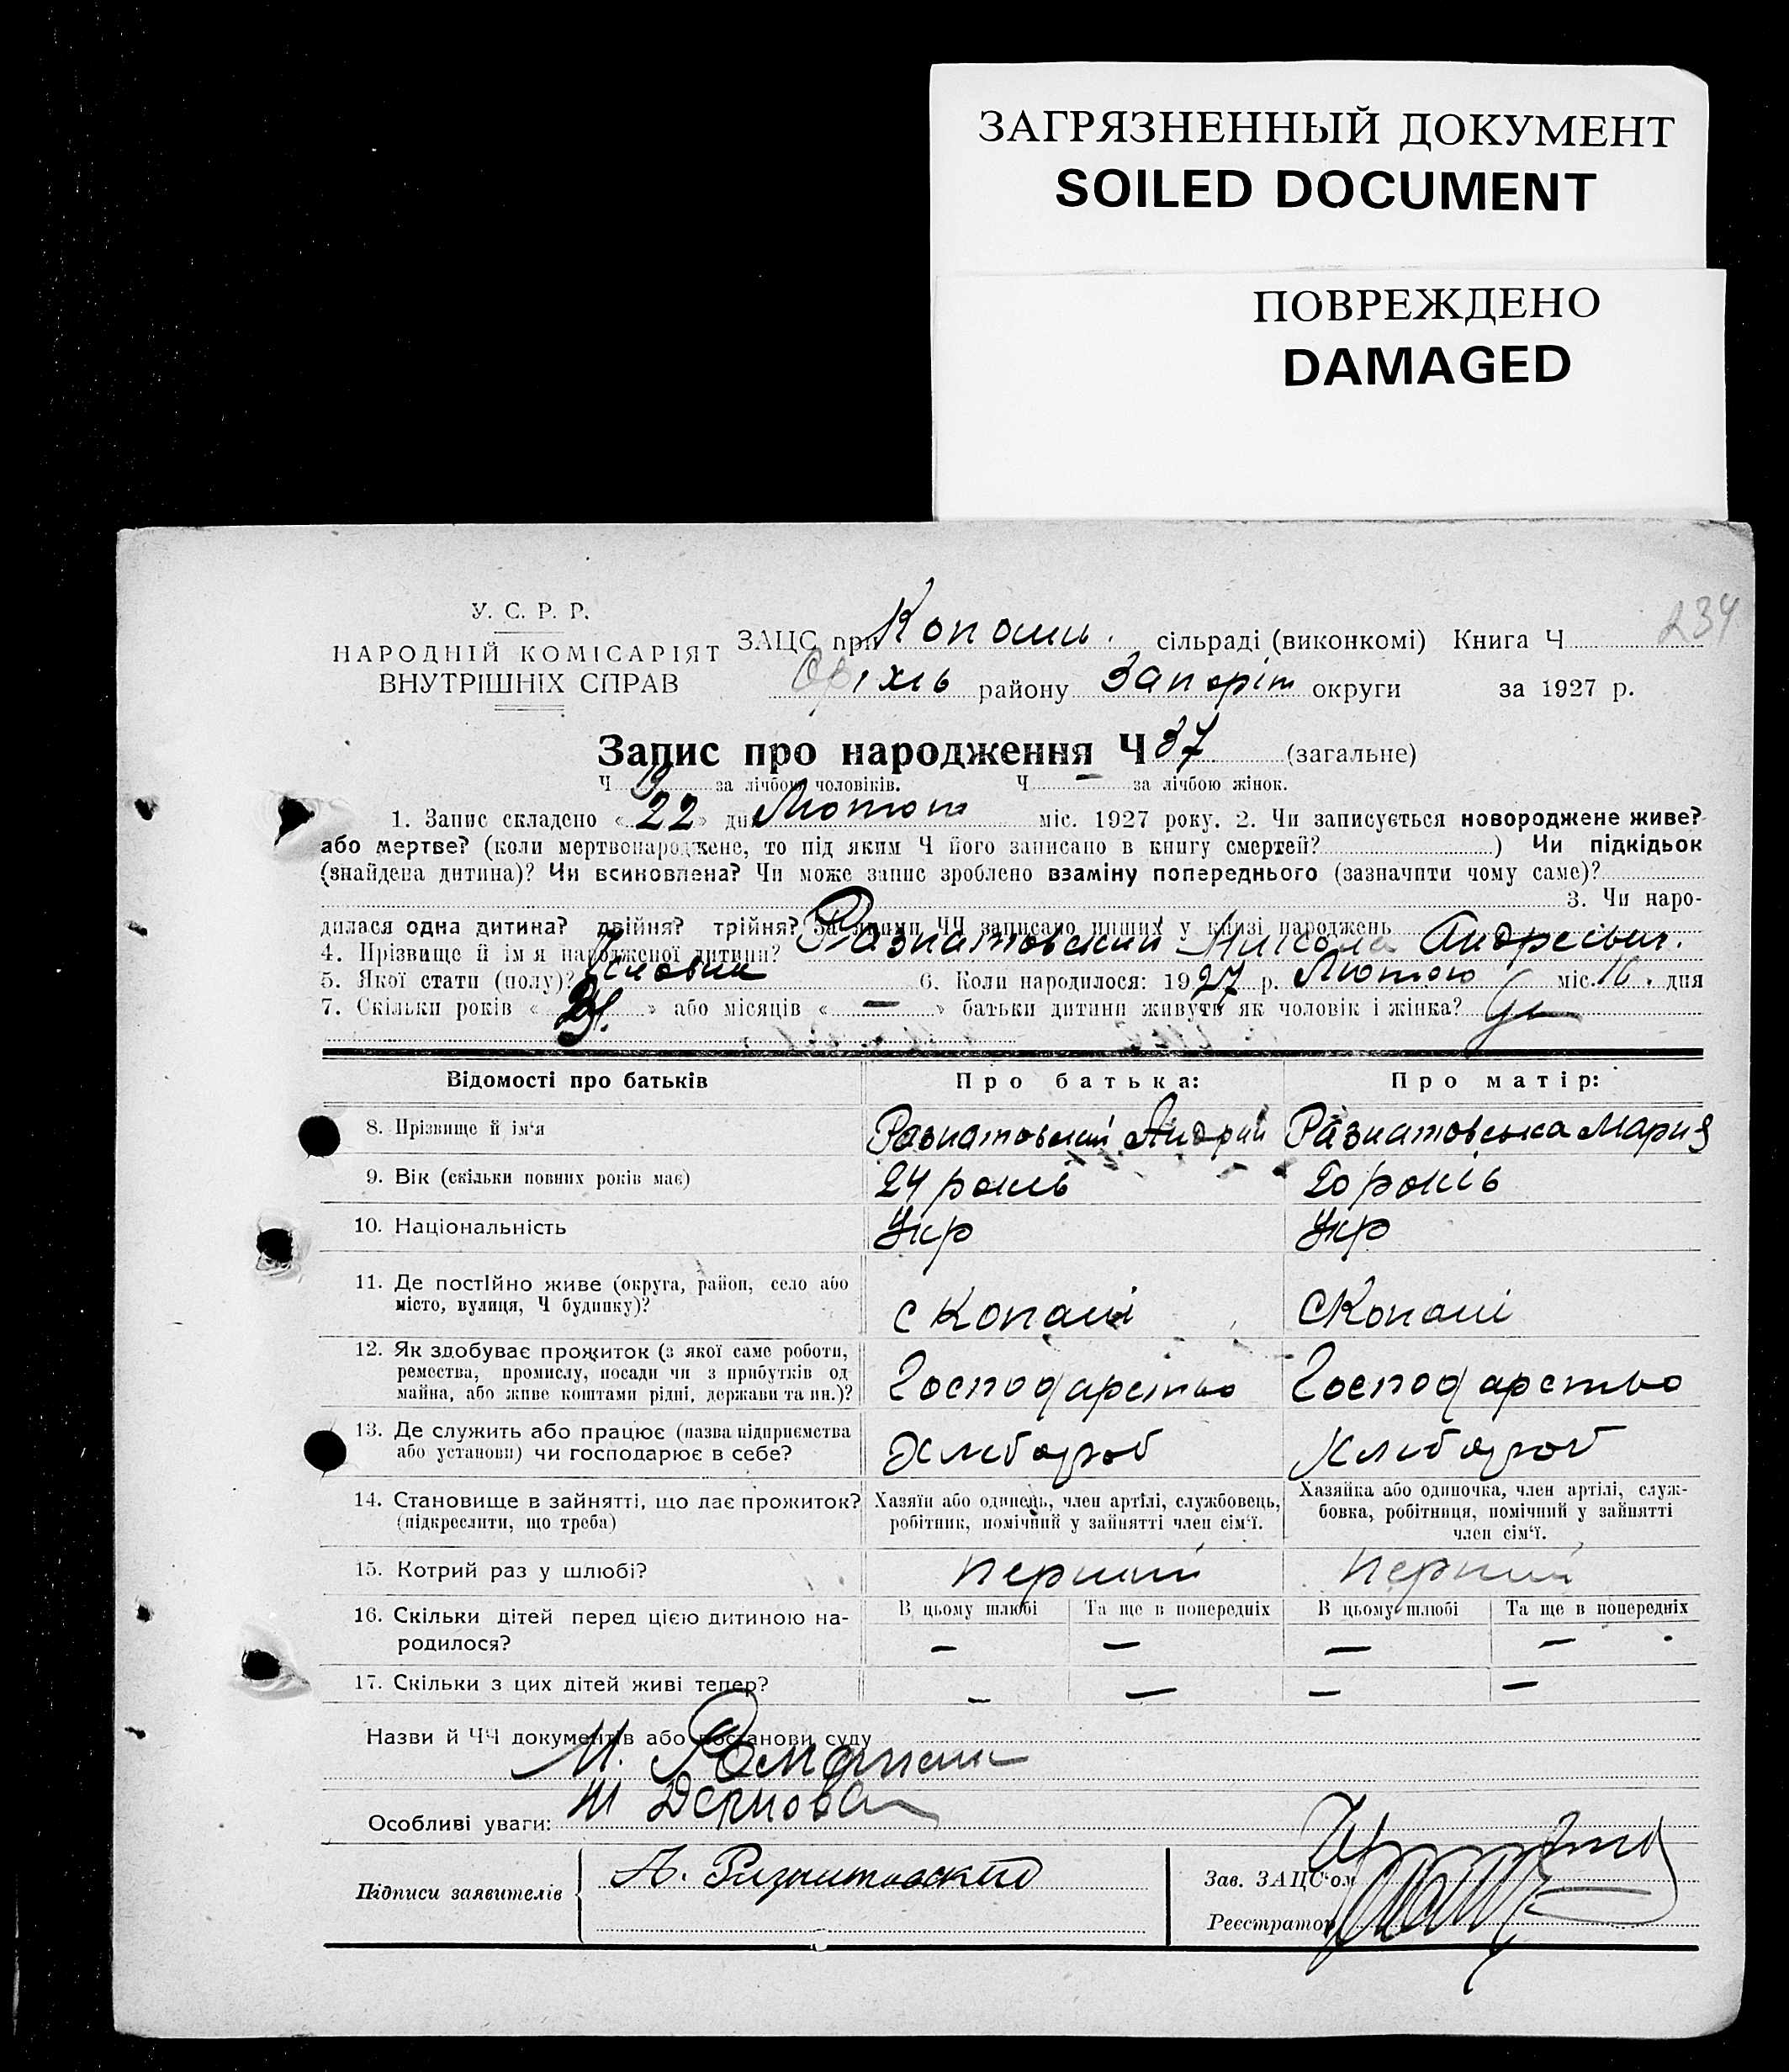 ЗАГРЯЗНЕННЫЙ ДОКУМЕНТ
SOILED DOCUMENT
ПОВРЕЖДЕНО
DAMAGED
234
У. С. Р. Р.
НАРОДНІЙ КОМІСАРІЯТ
ВНУТРІШНІХ СПРАВ
ЗАЦС при Копань. сільраді (виконкомі) Книга Ч
Оріхів району Запоріж округи за 1927 р.
Запис про народження Ч 37 (загальне)
Ч за лічбою чоловіків. Ч — за лічбою жінок.
1. Запис складено « 22 » дня Лютого міс. 1927 року. 2. Чи записується новороджене живе?
або мертве? (коли мертвонароджене, то під яким Ч його записано в книгу смертей? ) Чи підкідьок
(знайдена дитина)? Чи всиновлена? Чи може запис зроблено взаміну попереднього (зазначити чому саме)?
3. Чи наро-
дилася одна дитина? двійня? трійня? За якими ЧЧ записано инших у книзі народжень
4. Прізвище й ім'я народженої дитини? Разнатовский Микола Андреевич.
5. Якої стати (полу)? Чоловик 6. Коли народилося: 1927 р. Лютого міс. 16. дня
7. Скільки років « » або місяців « — » батьки дитини живуть як чоловік і жінка?
Відомості про батьків Про батька: Про матір:
8. Прізвище й ім'я Разнатовский Андрий Разнатовська Мария
9. Вік (скільки повних років має) 24 років 20 років
10. Національність Укр Укр
11. Де постійно живе (округа, район, село або
місто, вулиця, Ч будинку)? с Копані с Копані
12. Як здобуває прожиток (з якої саме роботи,
ремества, промислу, посади чи з прибутків од
майна, або живе коштами рідні, держави та ин.)? Господарство Господарство
13. Де служить або працює (назва підприємства
або установи) чи господарює в себе? Хлибороб Хлибороб
14. Становище в зайнятті, що дає прожиток?
(підкреслити, що треба)
Хазяїн або одинець, член артілі, службовець,
робітник, помічний у зайнятті член сім'ї.
Хазяйка або одиночка, член артілі, служ-
бовка, робітниця, помічний у зайнятті
член сім'ї.
15. Котрий раз у шлюбі? перший перший
16. Скільки дітей перед цією дитиною на-
родилося?
В цьому шлюбі Та ще в попередніх В цьому шлюбі Та ще в попередніх
— — — —
17. Скільки з цих дітей живі тепер? — — — —
Назви й ЧЧ документів або постанови суду
Особливі уваги:
Підписи заявителів А. Разнатовский
Зав. ЗАЦС'ом
Реєстратор